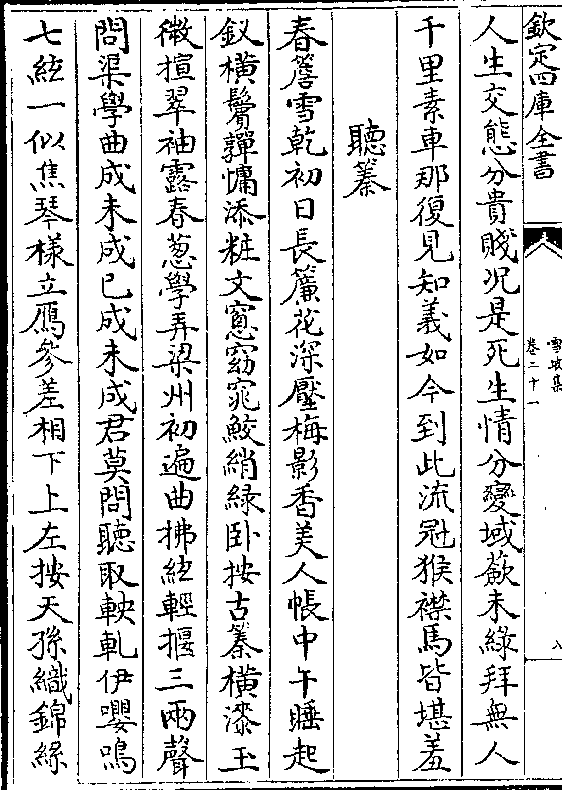 欽定四庫全書
雪坡集
卷二十一
八
人生交態分貴賤况是死生情分變域蕝未緑拜無人
千里素車那復見知義如今到此流冠猴襟馬皆堪羞
聽纂
春簷雪乾初日長簾花深壓梅影香美人帳中午睡起
釵横鬢嚲慵添粧文窻窈窕鮫綃緑卧按古纂横漆玉
微揎翠袖露春葱學弄梁州初遍曲拂絃輕揠三兩聲
問渠學曲成未成已成未成君莫問聽取軮軋伊嚶鳴
七絃一似焦琴様立鴈參差相下上左按天孫織錦絲